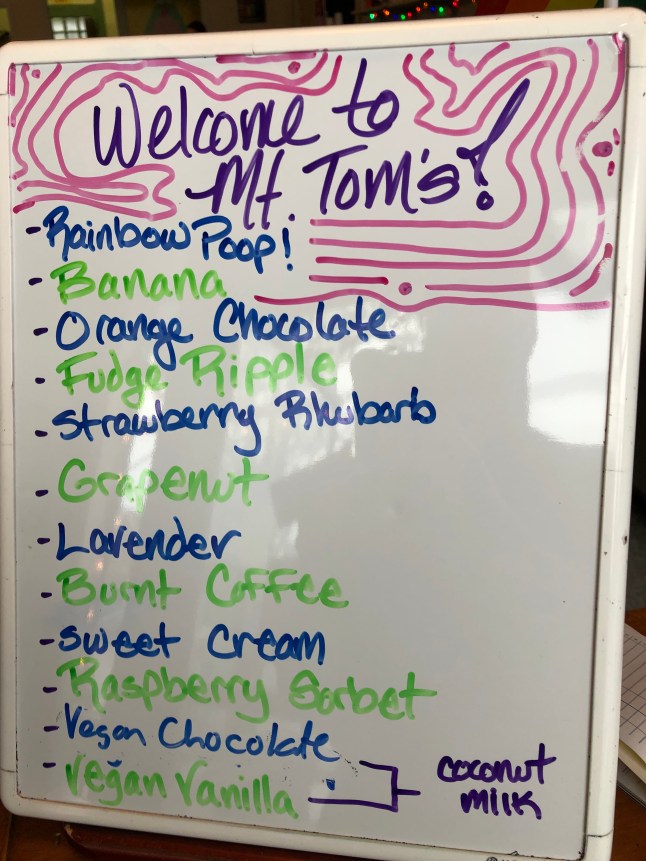 Welcome to
Mt. Tom's!
-Rainbow Poop!
-Banana
-Orange Chocolate
-Fudge Ripple
-Strawberry Rhubarb
-Grapenut
-Lavender
-Burnt Coffee
-Sweet Cream
-Raspberry Sorbet
-Vegan Chocolate
-Vegan Vanilla
coconut
milk